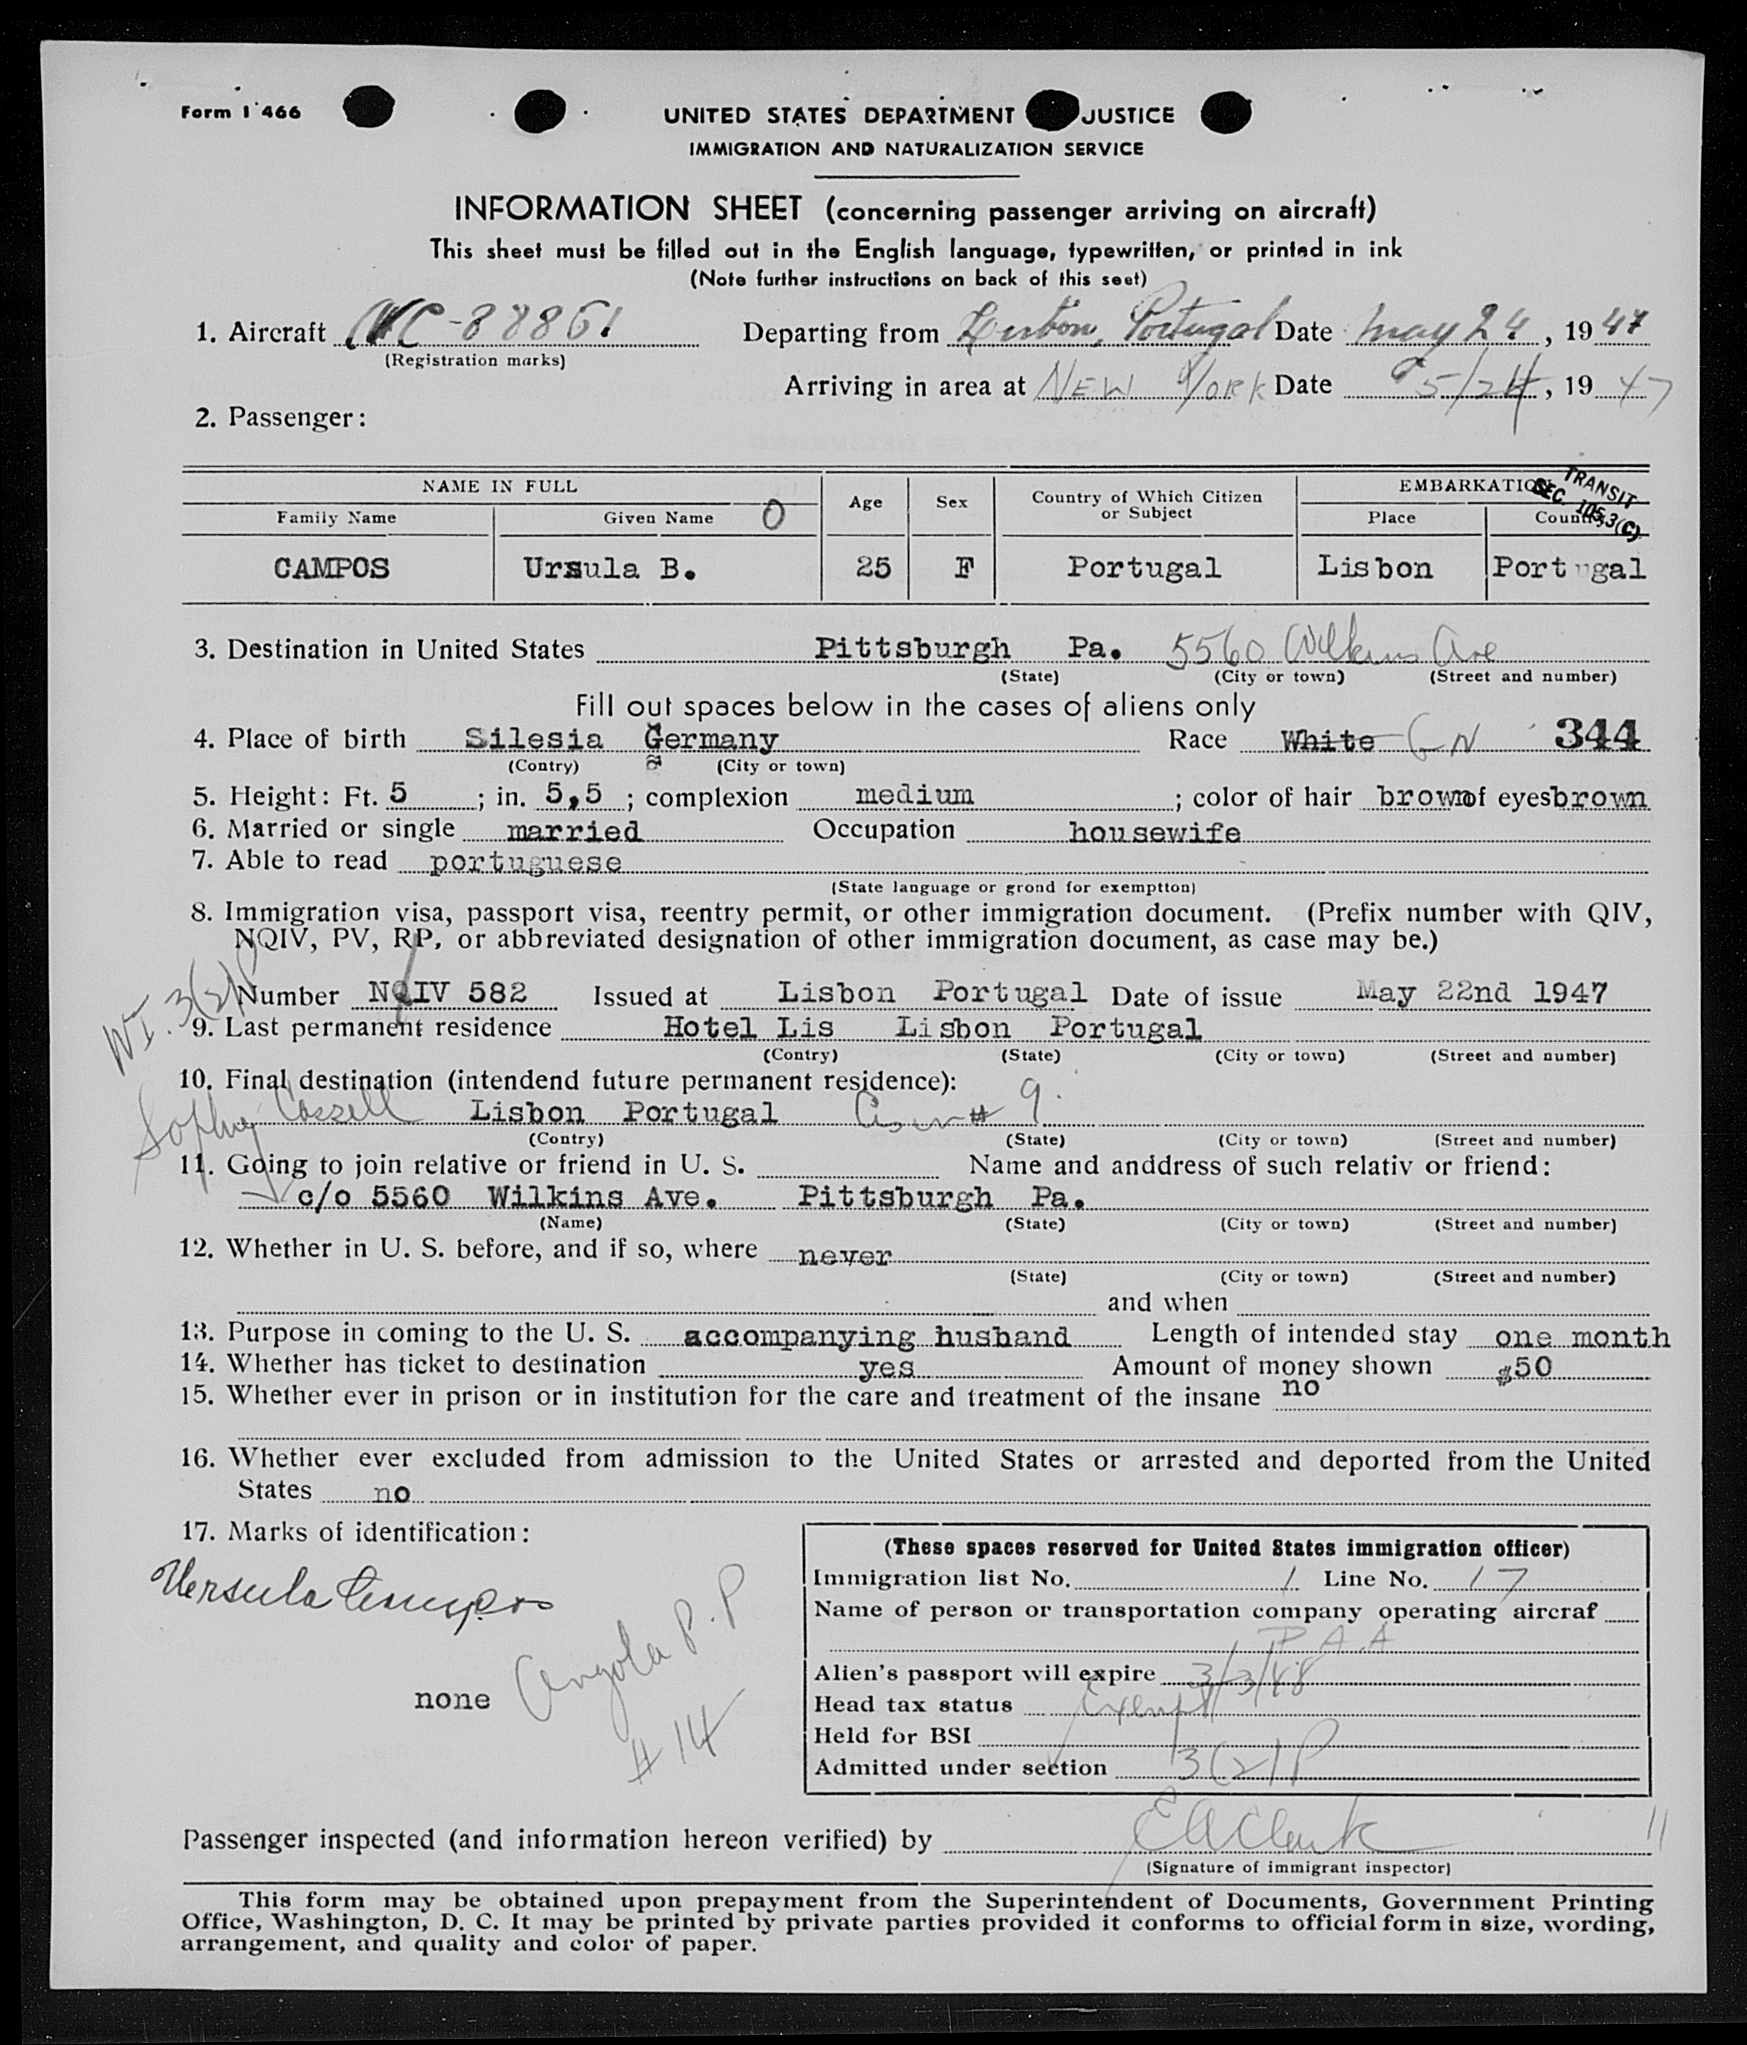 Form I 466
UNITED STATES DEPARTMENT JUSTICE
IMMIGRATION AND NATURALIZATION SERVICE
INFORMATION SHEET (concerning passenger arriving on aircraft)
This sheet must be filled out in the English language, typewritten, or printed in ink
(Note further instructions on back of this seet)
1. Aircraft NC-88861 Departing from Lisbon, Portugal Date May 24, 1947
(Registration marks)
Arriving in area at NEW YORK Date 5/24, 1947
2. Passenger:
NAME IN FULL Age Sex Country of Which Citizen or Subject EMBARKATION TRANSIT SEC. 105.3(C)
Family Name Given Name O Place Country
CAMPOS Ursula B. 25 F Portugal Lisbon Portugal
3. Destination in United States Pittsburgh Pa. 5560 Wilkins Ave
(State) (City or town) (Street and number)
Fill out spaces below in the cases of aliens only
4. Place of birth Silesia Germany Race White GN 344
(Contry) (City or town)
5. Height: Ft. 5; in. 5,5; complexion medium; color of hair brown of eyes brown
6. Married or single married Occupation housewife
7. Able to read portuguese
(State language or grond for exemptton)
8. Immigration visa, passport visa, reentry permit, or other immigration document. (Prefix number with QIV,
NQIV, PV, RP, or abbreviated designation of other immigration document, as case may be.)
WI. 3(2)P
Number NQIV 582 Issued at Lisbon Portugal Date of issue May 22nd 1947
9. Last permanent residence Hotel Lis Lisbon Portugal
(Contry) (State) (City or town) (Street and number)
10. Final destination (intendend future permanent residence):
Cassell Lisbon Portugal # 9.
(Contry) (State) (City or town) (Street and number)
11. Going to join relative or friend in U. S. Name and anddress of such relativ or friend:
c/o 5560 Wilkins Ave. Pittsburgh Pa.
(Name) (State) (City or town) (Street and number)
12. Whether in U. S. before, and if so, where never
(State) (City or town) (Street and number)
and when
13. Purpose in coming to the U. S. accompanying husband Length of intended stay one month
14. Whether has ticket to destination yes Amount of money shown $50
15. Whether ever in prison or in institution for the care and treatment of the insane no
16. Whether ever excluded from admission to the United States or arrested and deported from the United
States no
17. Marks of identification:
Ursula Campos
none
Angola P.P
# 14
(These spaces reserved for United States immigration officer)
Immigration list No. 1 Line No. 17
Name of person or transportation company operating aircraf
P.A.A
Alien's passport will expire 3/3/48
Head tax status Exempt
Held for BSI
Admitted under section 3(2)P
Passenger inspected (and information hereon verified) by EA Clark 11
(Signature of immigrant inspector)
This form may be obtained upon prepayment from the Superintendent of Documents, Government Printing
Office, Washington, D. C. It may be printed by private parties provided it conforms to official form in size, wording,
arrangement, and quality and color of paper.